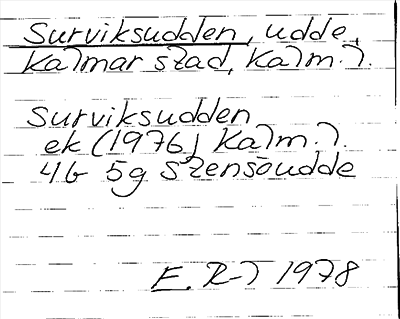 Surviksudden, udde,
Kalmar stad, Kalm. l.
Surviksudden
ek (1976) Kalm. l.
4G 5g Stensöudde
E. R-l 1978